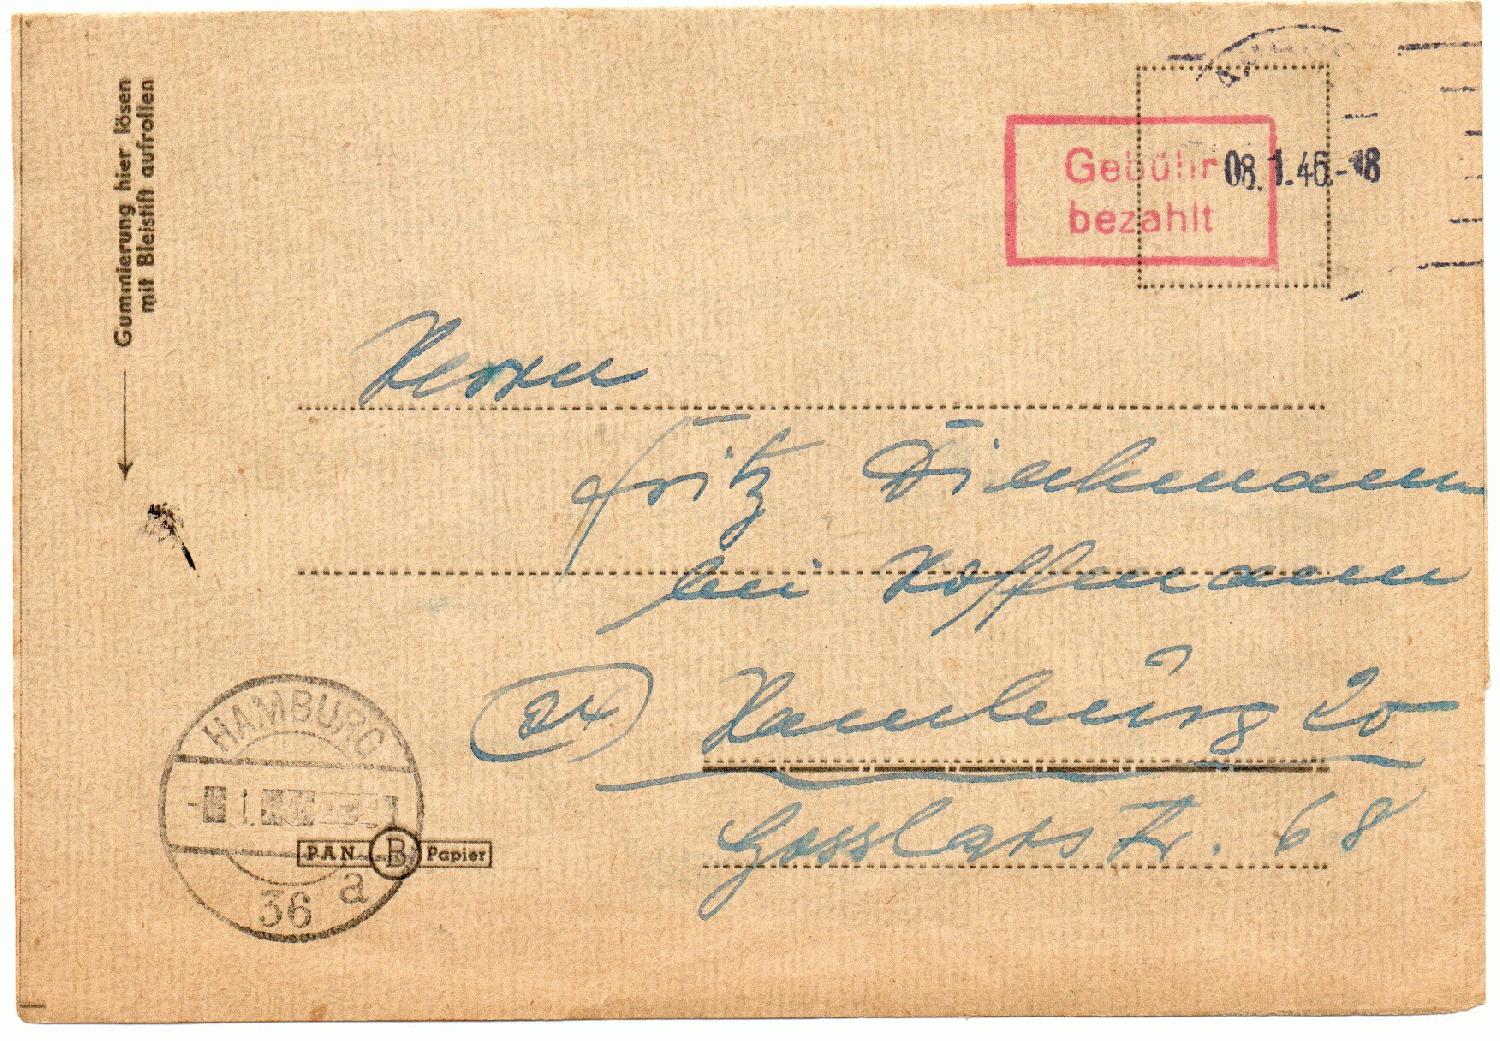 Gummierung hier lösen
mit Bleistift aufrollen
Gebühr
bezahlt
08.1.46.-18
Herrn
Fritz Diekmann
bei Hoffmann
(24) Hamburg 20
Gosslarstr. 68
HAMBURG
36 a
PAN B Papier